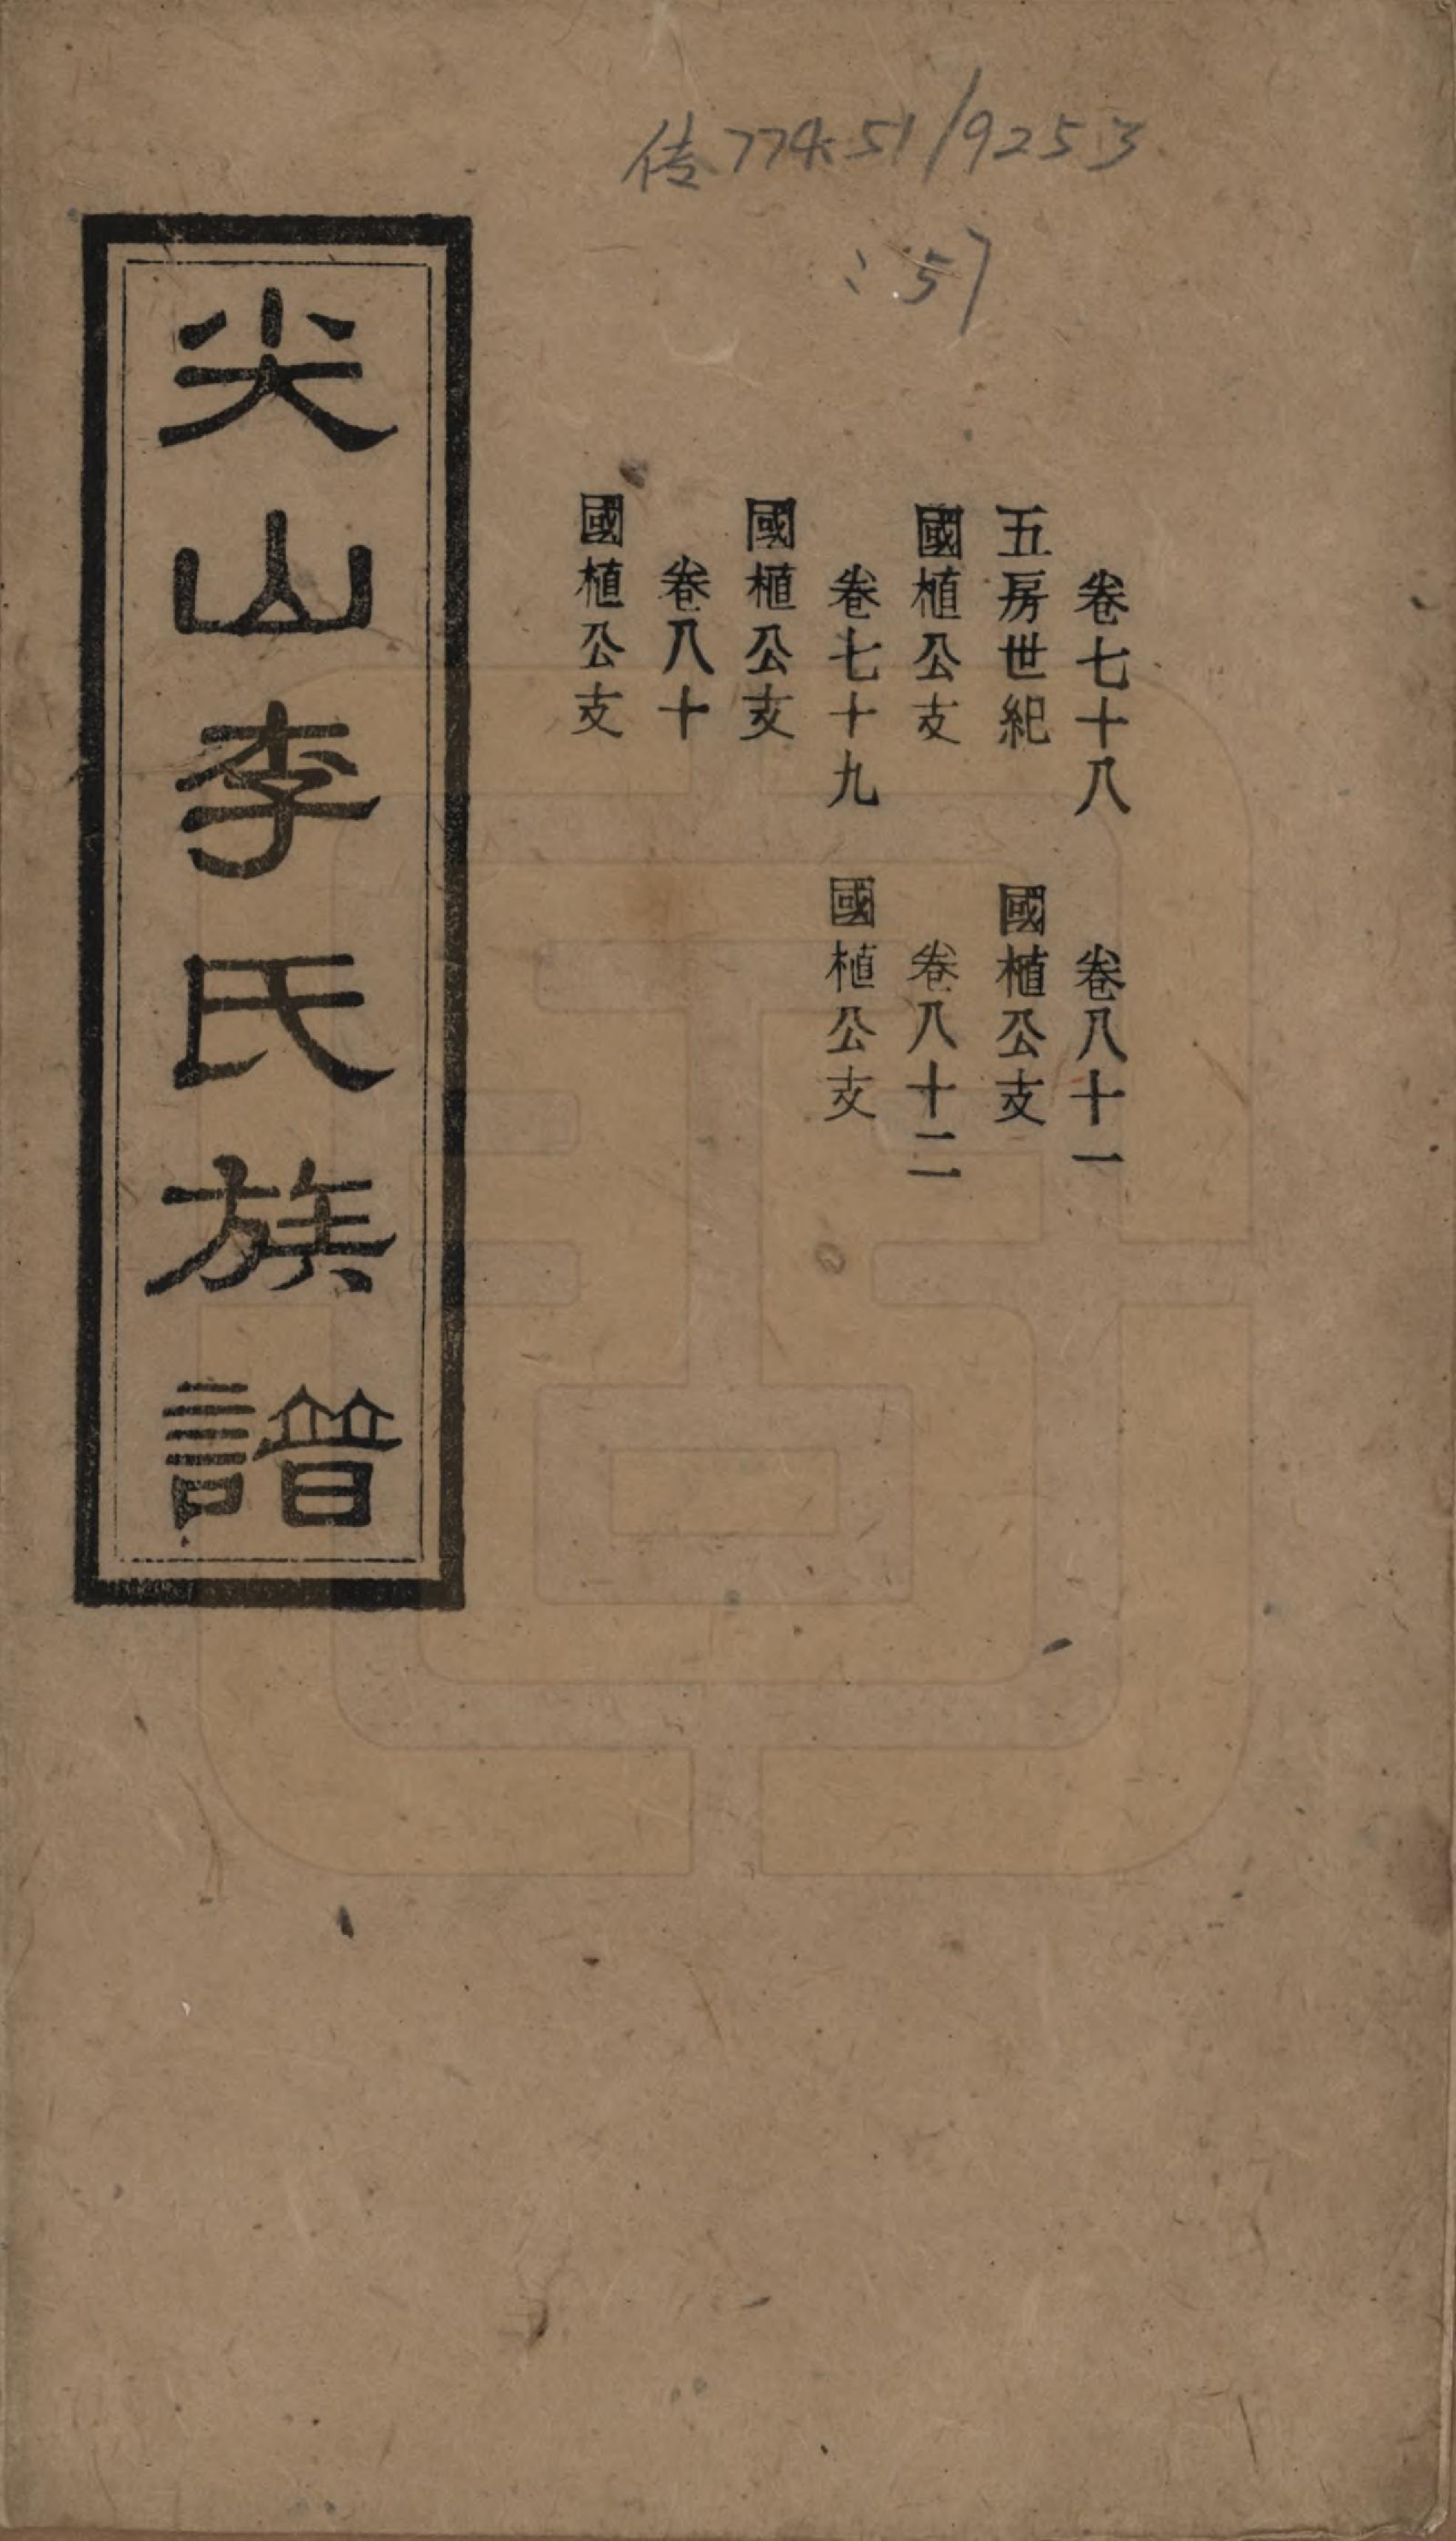 传774.51/9253
:57
卷七十八
五房世紀
國植公支
卷七十九
國植公支
卷八十
國植公支
卷八十一
國植公支
卷八十二
國植公支
尖山李氏族譜